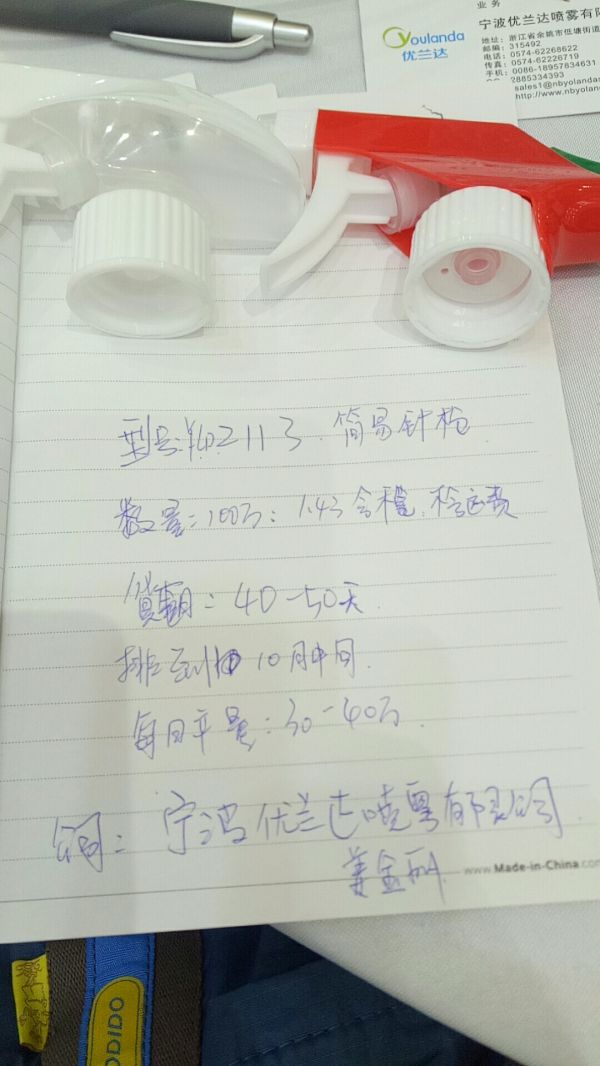 业务
Youlanda
优兰达
宁波优兰达喷雾有限
地址：浙江省余姚市低塘街道
邮编：315492
电话：0574-62268622
传真：0574-62226719
手机：0086-18957834631
2885334393
sales1@nbyolandas
http://www.nbyolan
数量：100万：1.43含税
货期：40-50天
10月中旬
30-40万
公司：宁波优兰达喷雾有限公司
www.Made-in-China.com
DIDO